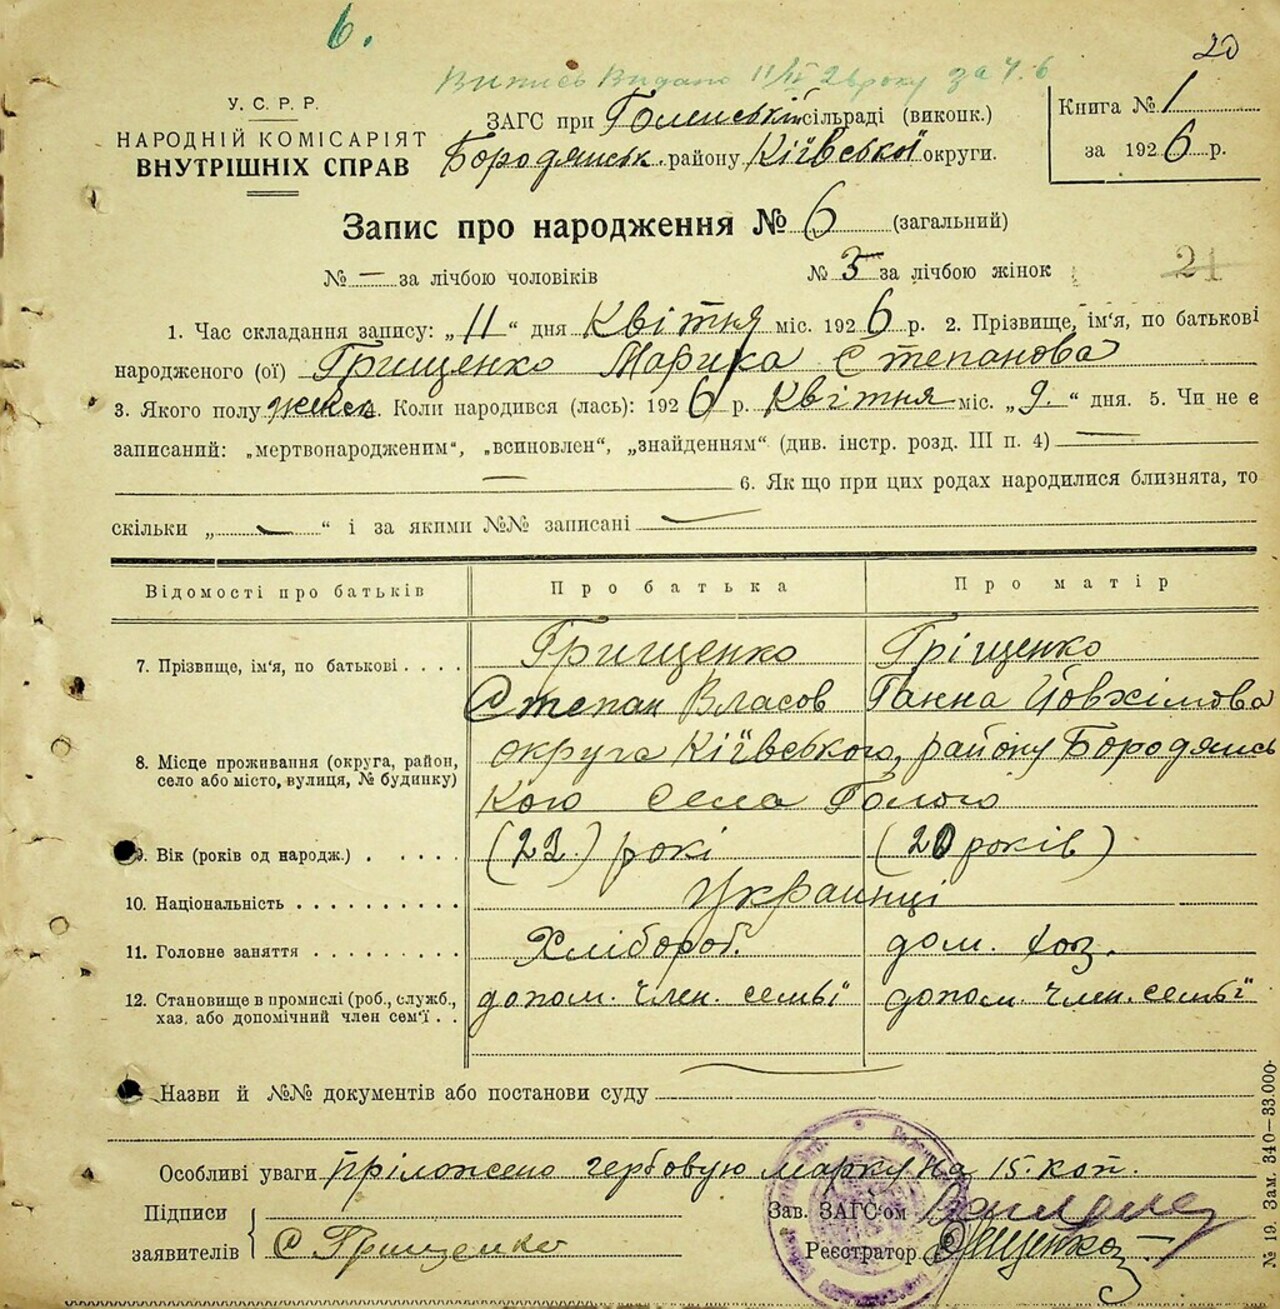 6.
20
Витись Видано 11/IV 26 року за ч. 6
У. С. Р. Р.
НАРОДНІЙ КОМІСАРІЯТ
ВНУТРІШНІХ СПРАВ
ЗАГС при Голенській сільраді (виконк.)
Бородянськ. району Кіївської округи.
Книга № 1
за 1926 р.
Запис про народження № 6 (загальний)
№ — за лічбою чоловіків № 3 за лічбою жінок
21
1. Час складання запису: „11“ дня Квітня міс. 1926 р. 2. Прізвище, ім'я, по батькові
народженого (ої) Грищенко Марика Степанова
3. Якого полу женск. Коли народився (лась): 1926 р. Квітня міс. „9.“ дня. 5. Чи не є
записаний: „мертвонародженим“, „всиновлен“, „знайденням“ (див. інстр. розд. III п. 4) —
— 6. Як що при цих родах народилися близнята, то
скільки „—“ і за якими №№ записані —
Відомості про батьків Про батька Про матір
7. Прізвище, ім'я, по батькові . . . . Грищенко Гріщенко
Степан Власов Ганна Йовхімова
8. Місце проживання (округа, район, округа Кіївського, району Бородянсь
село або місто, вулиця, № будинку) кого Села Голого
9. Вік (років од народж.) . . . . . (23) рокі (20 років)
10. Національність . . . . . . . . . . Украинці
11. Головне заняття . . . . . . . . . Хлібороб. дом. хоз.
12. Становище в промислі (роб., служб., допом. член. семьї допом. член. семьї
хаз. або допомічний член сем'ї . .
Назви й №№ документів або постанови суду
Особливі уваги пріложено гербовую марку на 15. коп.
Підписи Зав. ЗАГС'ом
заявителів С Грищенко Реєстратор
№ 19. Зам. 340—33.000.